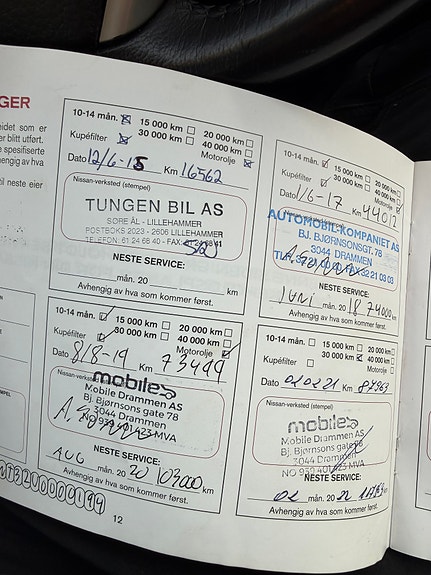 GER
eidet som er
er blitt utført.
e spesifiserte
hengig av hva
til neste eier
10-14 mån. 15 000 km 20 000 km
Kupéfilter 30 000 km 40 000 km
Motorolje
Dato 12/6-15 Km 16562
Nissan-verksted (stempel)
TUNGEN BIL AS
SØRE ÅL - LILLEHAMMER
POSTBOKS 2023 - 2606 LILLEHAMMER
TELEFON. 61 24 68 40 - FAX: 61 24 68 41
NESTE SERVICE:
mån. 20 km
Avhengig av hva som kommer først.
10-14 mån. 15 000 km 20 000 km
Kupéfilter 30 000 km 40 000 km
Motorolje
Dato 1/6-17 Km 44012
Nissan-verksted (stempel)
AUTOMOBIL-KOMPANIET AS
BJ. BJØRNSONSGT. 78
3044 DRAMMEN
NESTE SERVICE:
JUNI mån. 20 18 74000 km
Avhengig av hva som kommer først.
10-14 mån. 15 000 km 20 000 km
Kupéfilter 30 000 km 40 000 km
Motorolje
Dato 8/8-19 Km 73499
Nissan-verksted (stempel)
mobile
Mobile Drammen AS
Bj. Bjørnsons gate 78
3044 Drammen
NO 939 401 423 MVA
NESTE SERVICE:
AUG mån. 20 20 103000 km
Avhengig av hva som kommer først.
10-14 mån. 15 000 km 20 000 km
Kupéfilter 30 000 km 40 000 km
Motorolje
Dato 010221 Km 87963
Nissan-verksted (stempel)
mobile
Mobile Drammen AS
Bj. Bjørnsons gate 78
3044 Drammen
NO 939 401 423 MVA
NESTE SERVICE:
02 mån. 20 22 km
Avhengig av hva som kommer først.
12